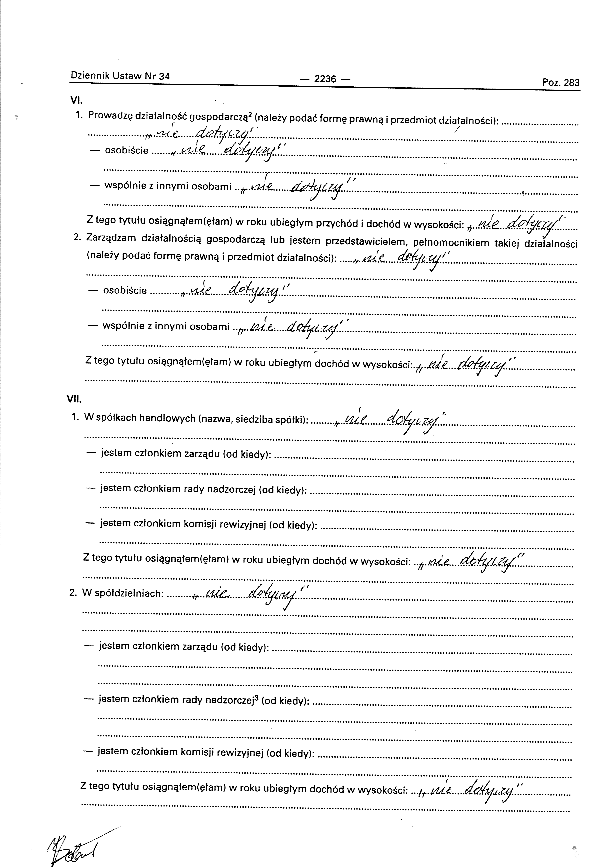 Dziennik Ustaw Nr 34 — 2236 — Poz. 283
VI.
1. Prowadzę działalność gospodarczą² (należy podać formę prawną i przedmiot działalności):
„nie dotyczy"
— osobiście „nie dotyczy"
— wspólnie z innymi osobami „nie dotyczy"
Z tego tytułu osiągnąłem(ęłam) w roku ubiegłym przychód i dochód w wysokości: „nie dotyczy"
2. Zarządzam działalnością gospodarczą lub jestem przedstawicielem, pełnomocnikiem takiej działalności
(należy podać formę prawną i przedmiot działalności): „nie dotyczy"
— osobiście „nie dotyczy"
— wspólnie z innymi osobami „nie dotyczy"
Z tego tytułu osiągnąłem(ęłam) w roku ubiegłym dochód w wysokości: „nie dotyczy"
VII.
1. W spółkach handlowych (nazwa, siedziba spółki): „nie dotyczy"
— jestem członkiem zarządu (od kiedy):
— jestem członkiem rady nadzorczej (od kiedy):
— jestem członkiem komisji rewizyjnej (od kiedy):
Z tego tytułu osiągnąłem(ęłam) w roku ubiegłym dochód w wysokości: „nie dotyczy"
2. W spółdzielniach: „nie dotyczy"
— jestem członkiem zarządu (od kiedy):
— jestem członkiem rady nadzorczej³ (od kiedy):
— jestem członkiem komisji rewizyjnej (od kiedy):
Z tego tytułu osiągnąłem(ęłam) w roku ubiegłym dochód w wysokości: „nie dotyczy"